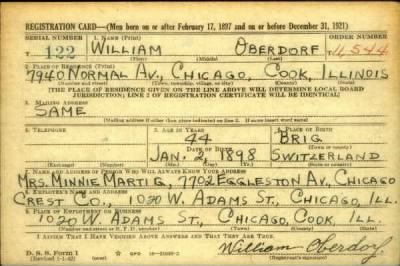 REGISTRATION CARD—(Men born on or after February 17, 1897 and on or before December 31, 1921)
SERIAL NUMBER 1. NAME (Print) ORDER NUMBER
T 122 WILLIAM OBERDORF 11,544
(First) (Middle) (Last)
2. PLACE OF RESIDENCE (Print)
7940 NORMAL AV., CHICAGO, COOK, ILLINOIS
(Number and street) (Town, township, village, or city) (County) (State)
[THE PLACE OF RESIDENCE GIVEN ON THE LINE ABOVE WILL DETERMINE LOCAL BOARD
JURISDICTION; LINE 2 OF REGISTRATION CERTIFICATE WILL BE IDENTICAL]
3. MAILING ADDRESS
SAME
[Mailing address if other than place indicated on line 2. If same insert word same]
4. TELEPHONE 5. AGE IN YEARS 6. PLACE OF BIRTH
44 BRIG
DATE OF BIRTH
JAN. 2, 1898 SWITZERLAND
7. NAME AND ADDRESS OF PERSON WHO WILL ALWAYS KNOW YOUR ADDRESS
MRS. MINNIE MARTIG, 7702 EGGLESTON AV., CHICAGO
8. EMPLOYER'S NAME AND ADDRESS
CREST CO., 1020 W. ADAMS ST., CHICAGO, ILL.
9. PLACE OF EMPLOYMENT OR BUSINESS
1020 W. ADAMS ST., CHICAGO, COOK, ILL.
(Number and street or R. F. D. number) (Town) (County) (State)
I AFFIRM THAT I HAVE VERIFIED ABOVE ANSWERS AND THAT THEY ARE TRUE.
D. S. S. Form 1
(Revised 1-1-42)
William Oberdorf